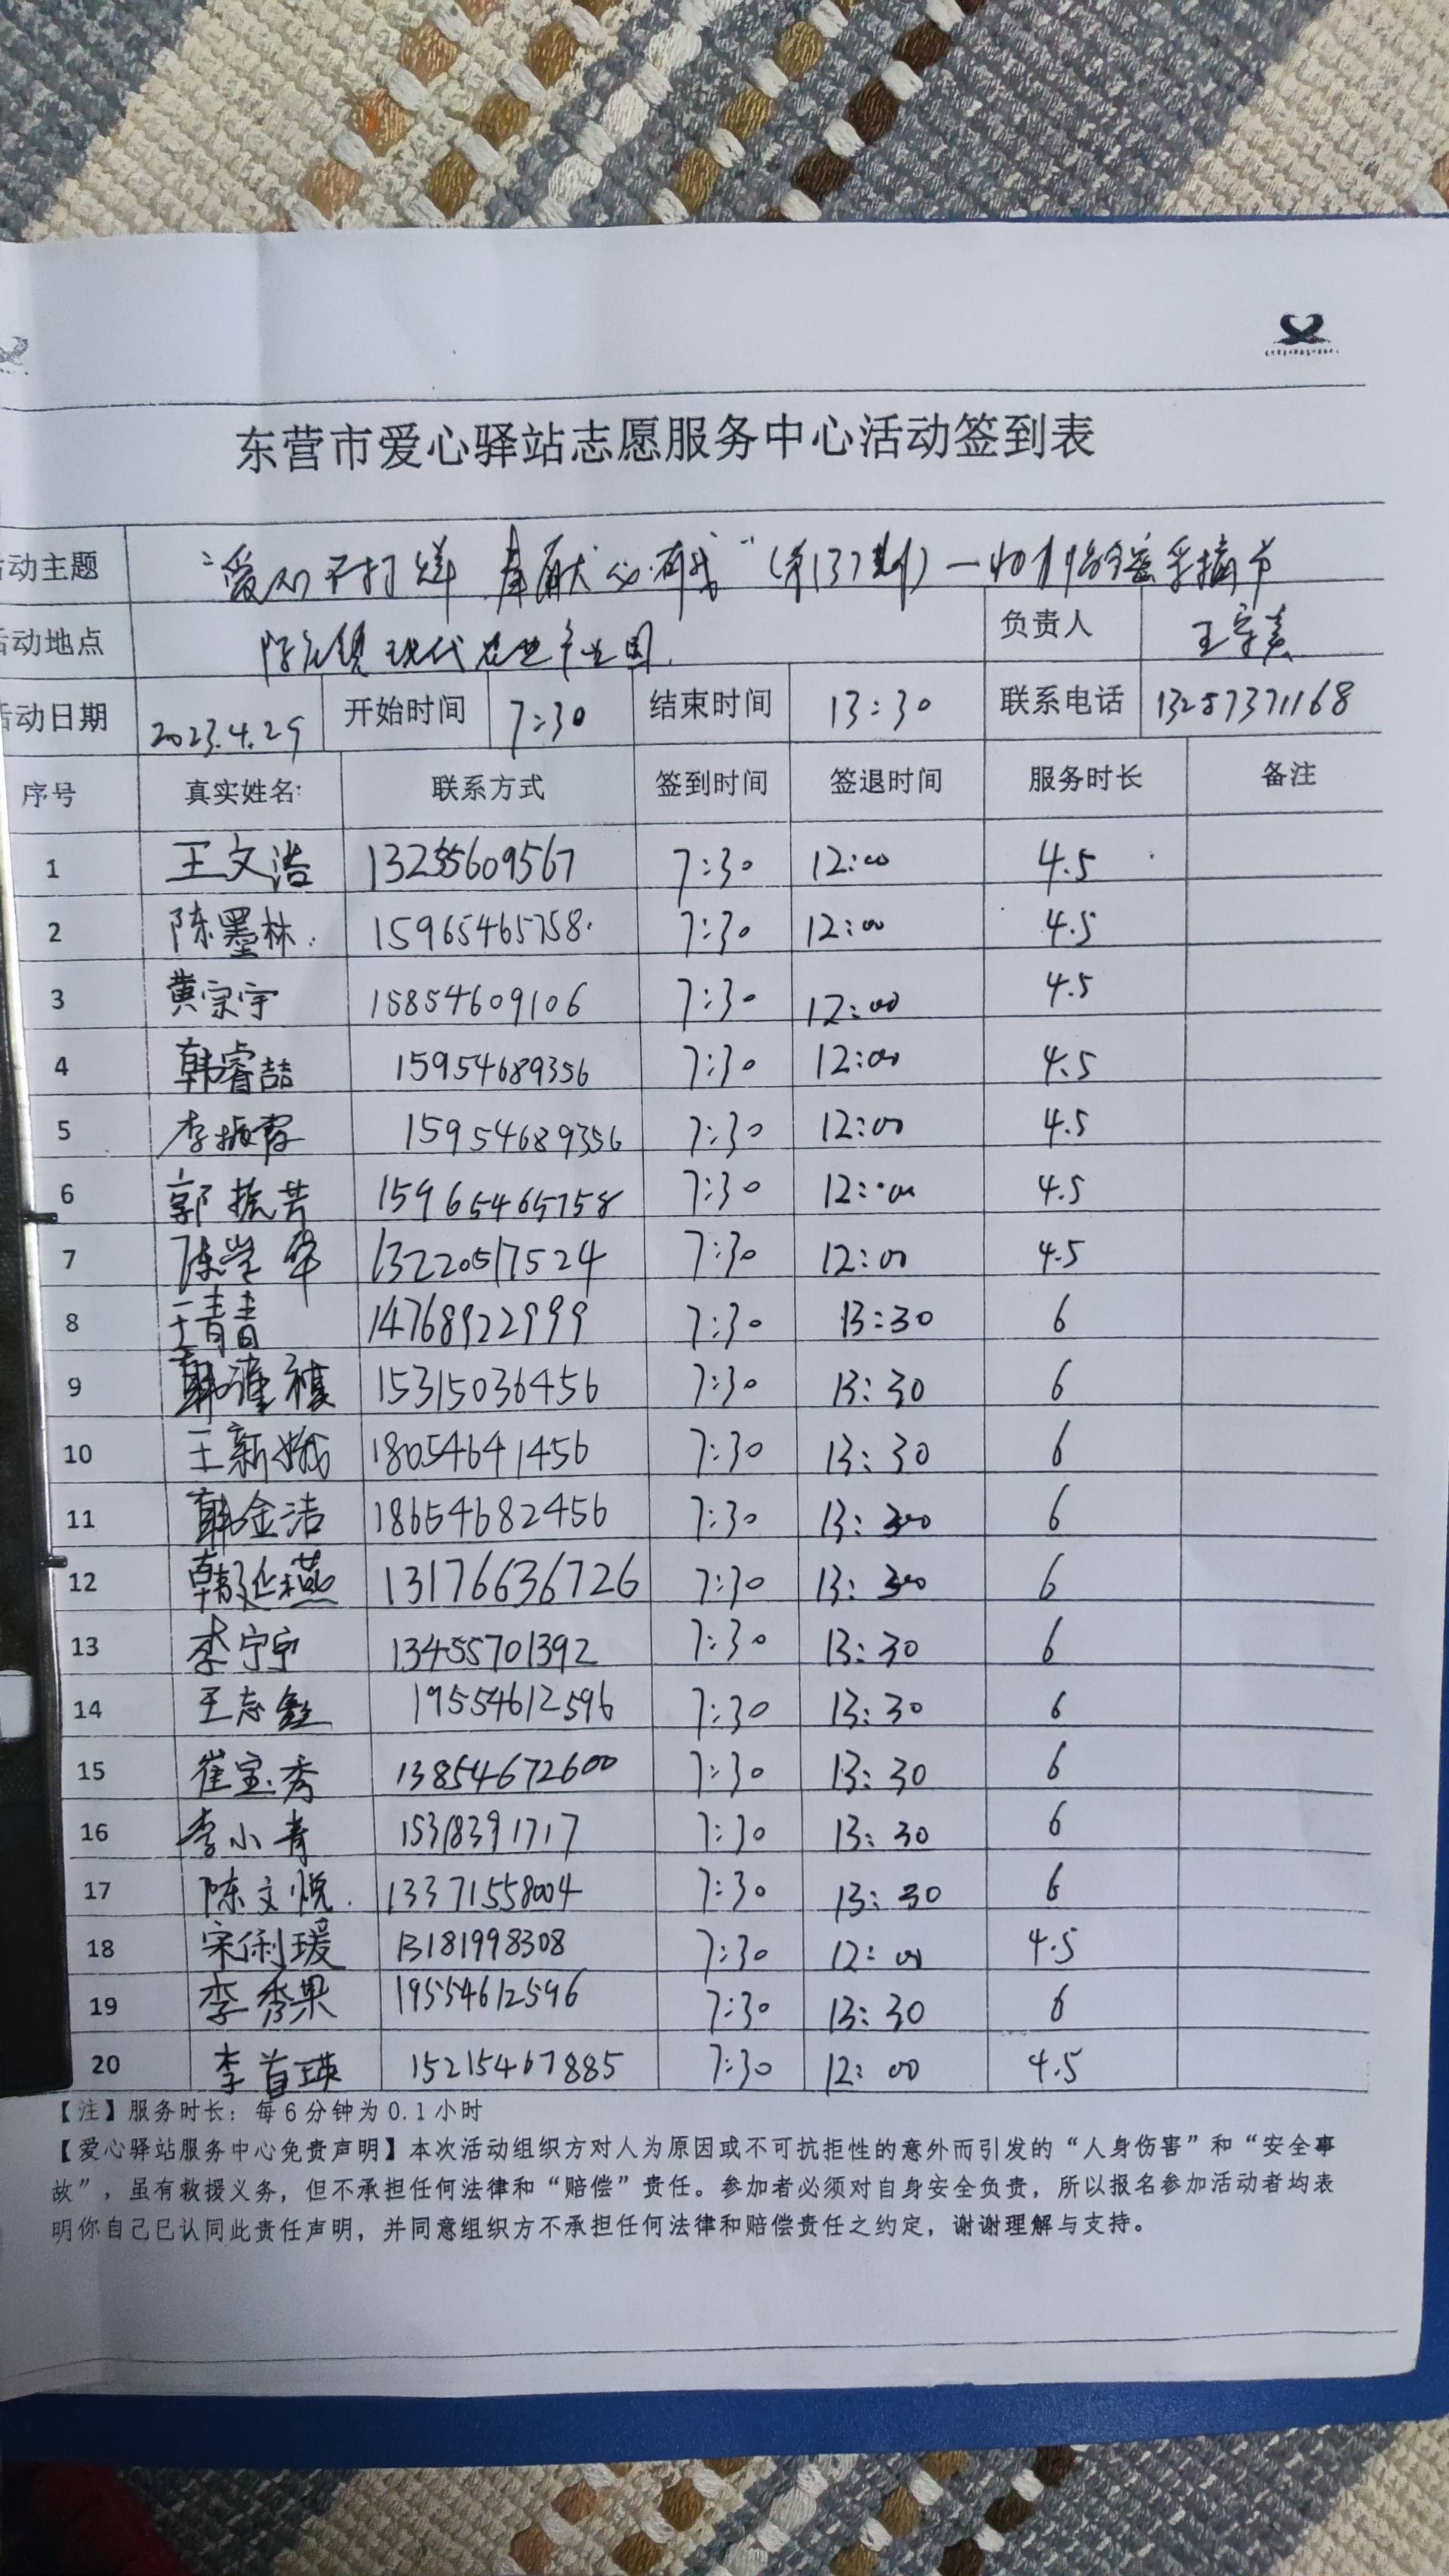 东营市爱心驿站志愿服务中心活动签到表
活动主题 “爱心不打烊 奉献必有我”(第137期)一 采摘节
活动地点 现代农业产业园 负责人 王
活动日期 2023.4.29 开始时间 7:30 结束时间 13:30 联系电话 13287371168
序号 真实姓名: 联系方式 签到时间 签退时间 服务时长 备注
1 王文浩 13255609567 7:30 12:00 4.5
2 陈墨林 15965465758 7:30 12:00 4.5
3 黄宗宇 15854609106 7:30 12:00 4.5
4 韩睿喆 15954689356 7:30 12:00 4.5
5 李振霞 15954689356 7:30 12:00 4.5
6 郭振芳 15965465758 7:30 12:00 4.5
7 陈学华 13220517524 7:30 12:00 4.5
8 王青青 14768922999 7:30 13:30 6
9 韩 15315036456 7:30 13:30 6
10 王新娥 18054641456 7:30 13:30 6
11 韩金洁 18654682456 7:30 13:30 6
12 韩延燕 13176636726 7:30 13:30 6
13 李宁宁 13455701392 7:30 13:30 6
14 王志鑫 19554612596 7:30 13:30 6
15 崔宝秀 13854672600 7:30 13:30 6
16 李小青 15318391717 7:30 13:30 6
17 陈文悦 13371558004 7:30 13:30 6
18 宋俐瑗 13181998308 7:30 12:00 4.5
19 李秀果 19554612596 7:30 13:30 6
20 李首瑛 15215467885 7:30 12:00 4.5
【注】服务时长：每6分钟为0.1小时
【爱心驿站服务中心免责声明】本次活动组织方对人为原因或不可抗拒性的意外而引发的“人身伤害”和“安全事
故”，虽有救援义务，但不承担任何法律和“赔偿”责任。参加者必须对自身安全负责，所以报名参加活动者均表
明你自己已认同此责任声明，并同意组织方不承担任何法律和赔偿责任之约定，谢谢理解与支持。